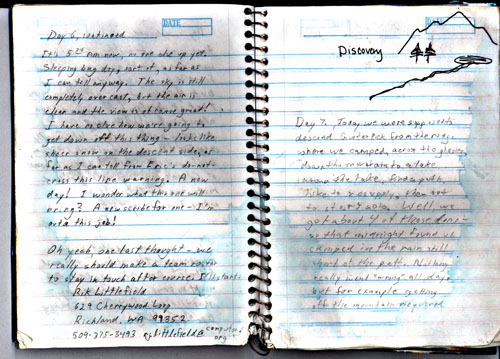 DATE
Day 6, continued
It's 5:29 am now, no one else up yet.
Sleeping bag dry, sort of, as far as
I can tell anyway. The sky is still
completely overcast, but the air is
clear and the view is of course great!
I have no idea how we're going to
get down off this thing - looks like
sheer snow on the descent side, as
far as I can tell from Epic's do-not-
cross this line warning. A new
day! I wonder what this one will
bring? A new scribe for one - I'm
outa this job!
Oh yeah, one last thought - we
really should make a team roster
to stay in touch after
Rik Littlefield
Richland, WA 99352
DATE
Discovery
Day 7. Today we were supposed to
descend from the
where we camped, across the glacier,
down the mountain to a lake,
lake, find a path,
hike to resupply, then
to start Well we
got about 4 of those done
so that midnight found us
camped in the rain still
of the path. Nothing
really went "wrong" all day
but for example getting
off the mountain required